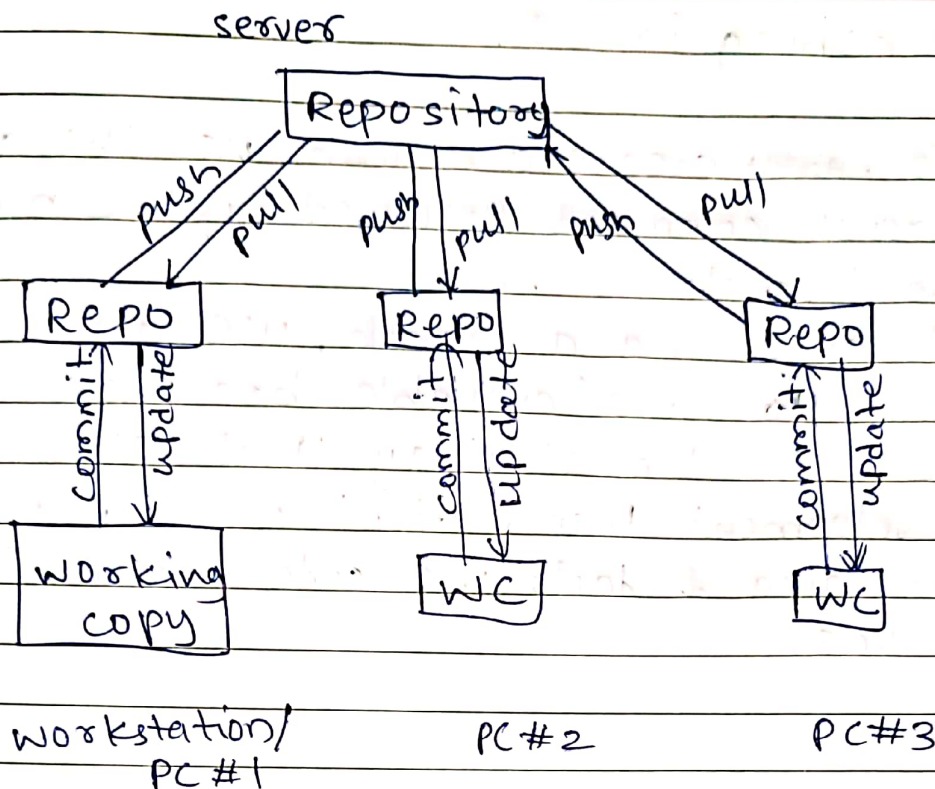 server
Repository
push
pull
push
pull
push
pull
Repo
Repo
Repo
commit
update
commit
update
commit
update
working
copy
WC
WC
workstation/
PC #1
PC #2
PC #3